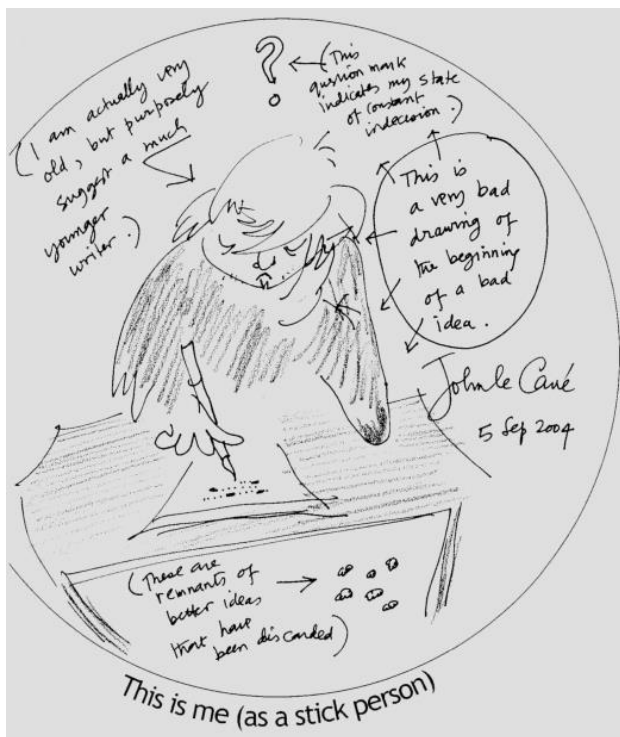 (I am actually very
old, but purposely
suggest a much
younger
writer.)
?
(This
question mark
indicates my state
of constant
indecision.)
This is
a very bad
drawing of
the beginning
of a bad
idea.
John le Carré
5 Sep 2004
(These are
remnants of
better ideas
that have
been discarded)
This is me (as a stick person)